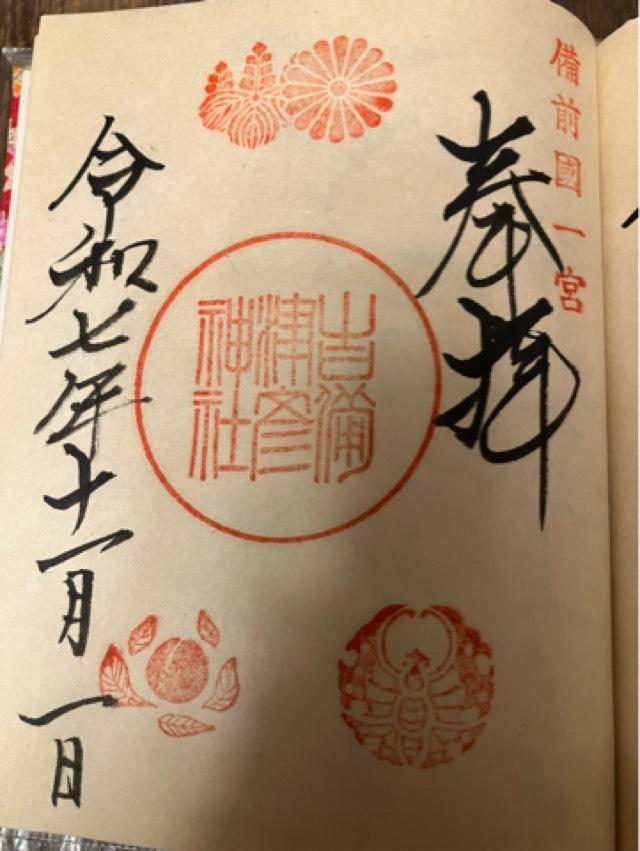 備前國一宮
奉拝
吉備
津彦
神社
令和七年十一月一日